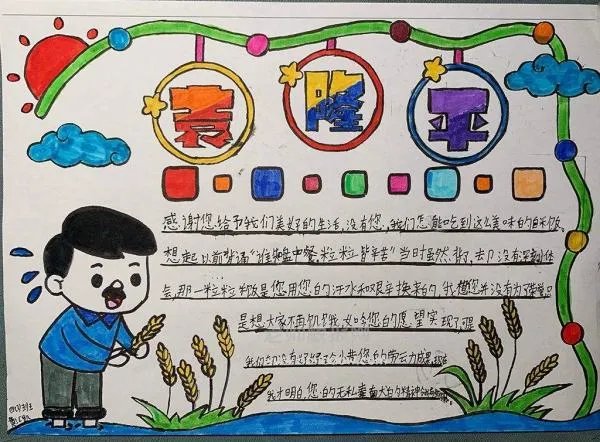 袁隆平
感谢您给予我们美好的生活,没有您,我们怎能吃到这么美味的白米饭。
想起以前背诵"谁知盘中餐,粒粒皆辛苦"当时虽然背了,却没有深刻体
会,那一粒粒米饭是您用您的汗水和艰辛换来的,我想您并没有为了
是想大家不再饥饿,如今您的愿望实现了,
我们 您的劳动成果,
我才明白,您的无私奉献大的精神
四(1)班